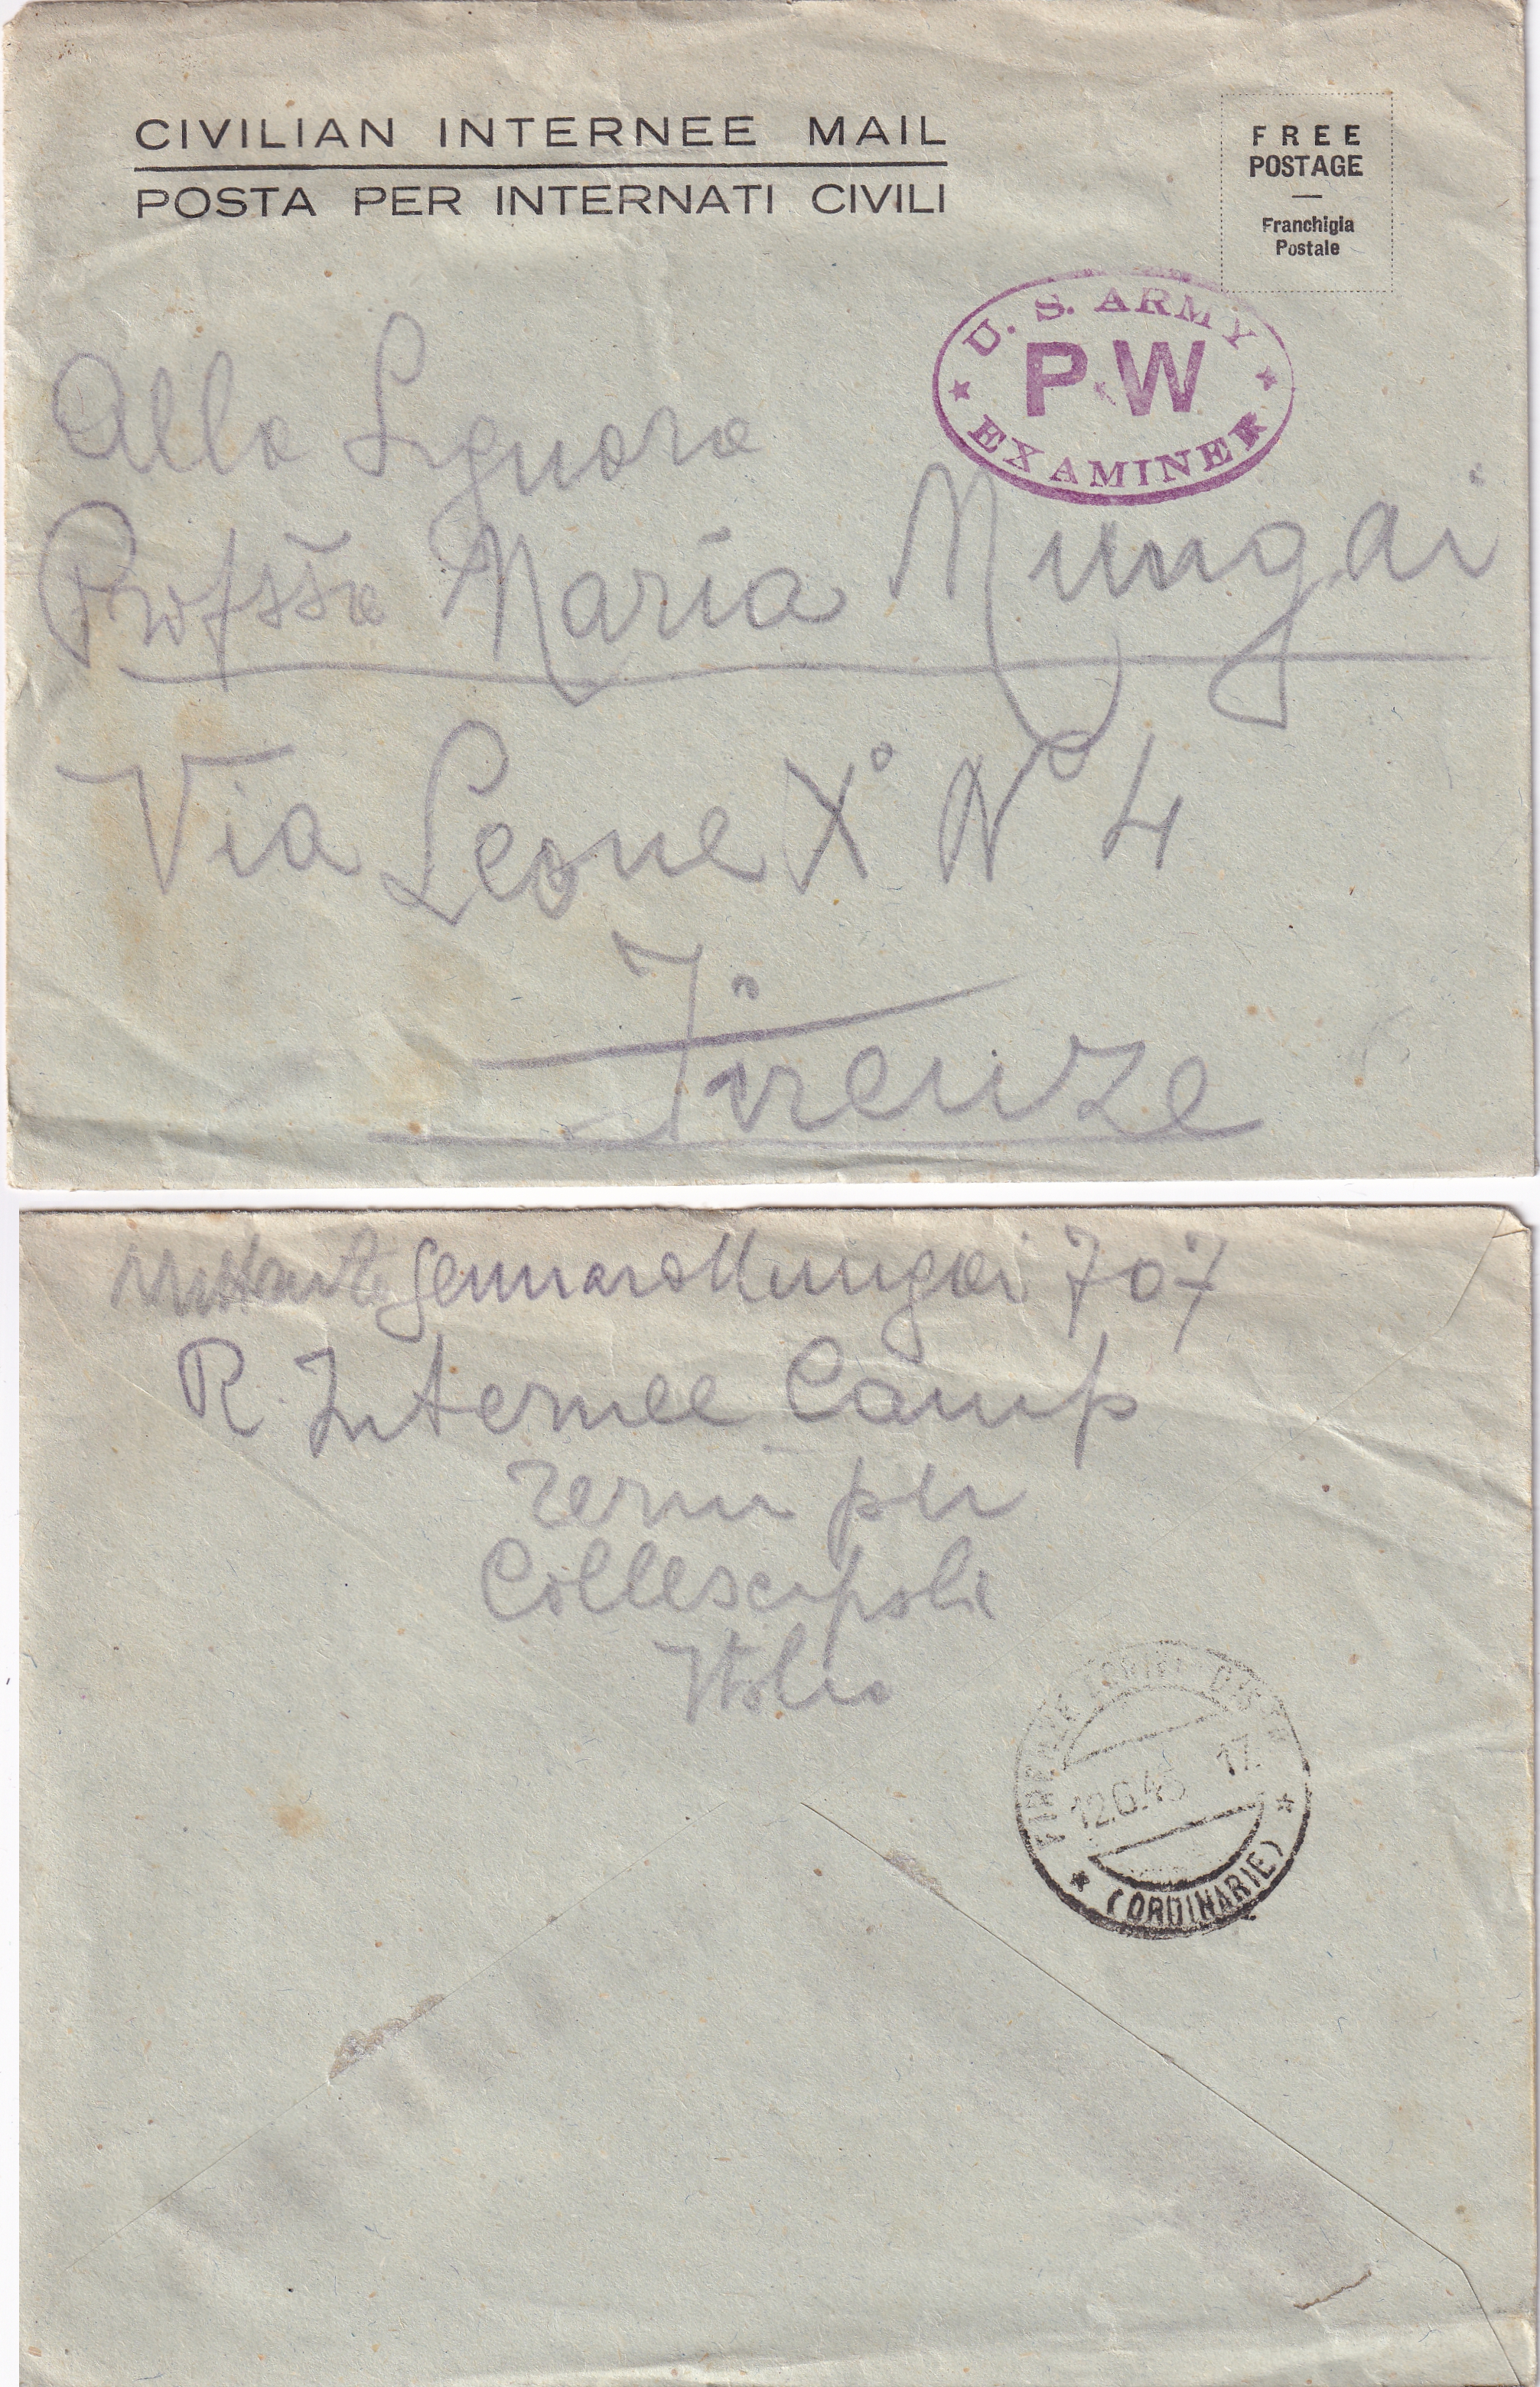 CIVILIAN INTERNEE MAIL
POSTA PER INTERNATI CIVILI
FREE
POSTAGE
Franchigia
Postale
U. S. ARMY
PW
EXAMINER
Alla Signora
Profssa Maria Mungai
Via Leone X° N° 4
Firenze
mittente Gennaro Mungai 707
R. Internee Camp
Terni per
Collescipoli
Italia
FIRENZE POSTA
12.6.45 17
(ORDINARIE)